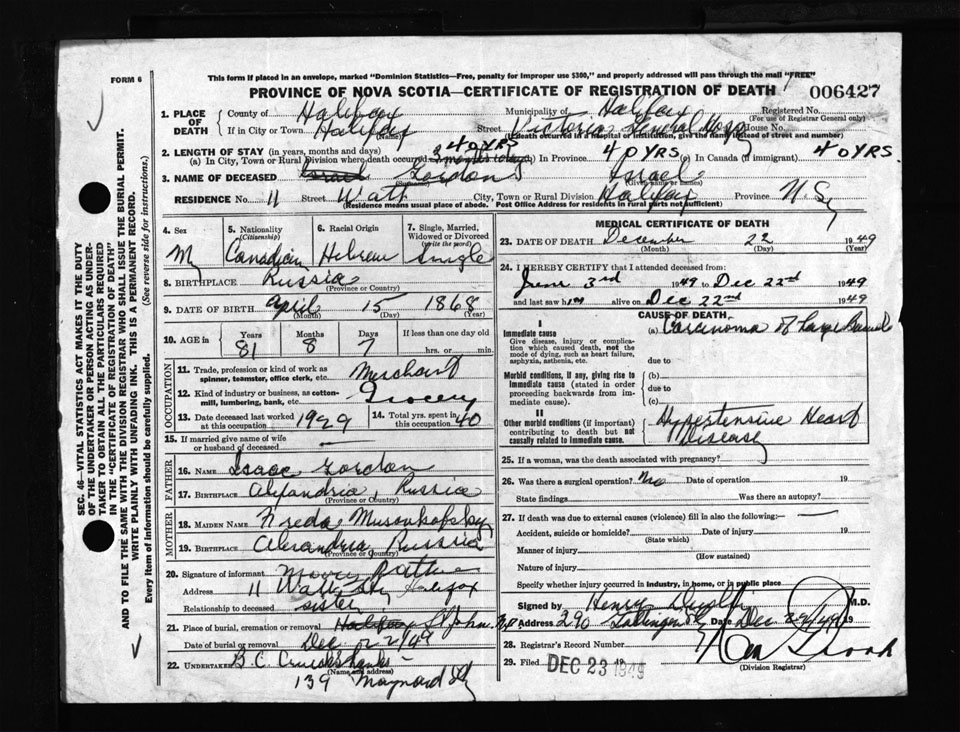 FORM 6
This form if placed in an envelope, marked "Dominion Statistics—Free, penalty for improper use $300," and properly addressed will pass through the mail "FREE"
PROVINCE OF NOVA SCOTIA—CERTIFICATE OF REGISTRATION OF DEATH
006427
SEC. 46—VITAL STATISTICS ACT MAKES IT THE DUTY
OF THE UNDERTAKER OR PERSON ACTING AS UNDER-
TAKER TO OBTAIN ALL THE PARTICULARS REQUIRED
IN THE "CERTIFICATE OF REGISTRATION OF DEATH"
AND TO FILE THE SAME WITH THE DIVISION REGISTRAR WHO SHALL ISSUE THE BURIAL PERMIT.
WRITE PLAINLY WITH UNFADING INK. THIS IS A PERMANENT RECORD.
Every item of information should be carefully supplied. (See reverse side for instructions.)
1. PLACE OF DEATH
County of Halifax Municipality of Halifax Registered No.
(For use of Registrar General only)
If in City or Town Halifax Street Victoria General Hosp House No.
(If death occurred in a hospital or institution, give the name instead of street and number)
2. LENGTH OF STAY (in years, months and days)
40 YRS
(a) In City, Town or Rural Division where death occurred 3 months (b) In Province 40 YRS (c) In Canada (if immigrant) 40 YRS.
3. NAME OF DECEASED Israel Gordon Israel
(Surname) (Given name or names)
RESIDENCE No. 11 Street Watt City, Town or Rural Division Halifax Province N.S.
(Residence means usual place of abode. Post Office Address for residents in rural parts not sufficient)
4. Sex 5. Nationality (Citizenship) 6. Racial Origin 7. Single, Married, Widowed or Divorced (write the word)
M Canadian Hebrew Single
8. BIRTHPLACE Russia
(Province or Country)
9. DATE OF BIRTH April 15 1868
(Month) (Day) (Year)
10. AGE in Years Months Days If less than one day old
81 8 7 hrs. or min.
OCCUPATION
11. Trade, profession or kind of work as spinner, teamster, office clerk, etc. Merchant
12. Kind of industry or business, as cotton-mill, lumbering, bank, etc. Grocery
13. Date deceased last worked at this occupation 1929 14. Total yrs. spent in this occupation 40
15. If married give name of wife or husband of deceased —
FATHER
16. NAME Isaac Gordon
17. BIRTHPLACE Alexandria, Russia
(Province or Country)
MOTHER
18. MAIDEN NAME Freda
19. BIRTHPLACE Alexandria Russia
(Province or Country)
20. Signature of informant
Address 11 Watt St Halifax
Relationship to deceased sister
21. Place of burial, cremation or removal Halifax St John. N.B.
Date of burial or removal Dec 22/49
22. UNDERTAKER B.C. Cruickshanks
(Name and address)
139 Maynard St
MEDICAL CERTIFICATE OF DEATH
23. DATE OF DEATH December 22 1949
(Month) (Day) (Year)
24. I HEREBY CERTIFY that I attended deceased from:
June 3rd 1949 to Dec 22nd 1949
and last saw him alive on Dec 22nd 1949
CAUSE OF DEATH
I
Immediate cause (a) Carcinoma of Large Bowel
Give disease, injury or complication which caused death, not the mode of dying, such as heart failure, asphyxia, asthenia, etc.
due to
Morbid conditions, if any, giving rise to immediate cause (stated in order proceeding backwards from immediate cause). (b)
due to
(c)
II
Other morbid conditions (if important) contributing to death but not causally related to immediate cause. Hypertensive Heart Disease
25. If a woman, was the death associated with pregnancy?
26. Was there a surgical operation? No Date of operation 19
State findings Was there an autopsy?
27. If death was due to external causes (violence) fill in also the following:— —
Accident, suicide or homicide? Date of injury 19
(State which)
Manner of injury
(How sustained)
Nature of injury
Specify whether injury occurred in industry, in home, or in public place
Signed by Henry M.D.
Address 290 Date Dec 19
28. Registrar's Record Number
29. Filed DEC 23 1949
(Division Registrar)